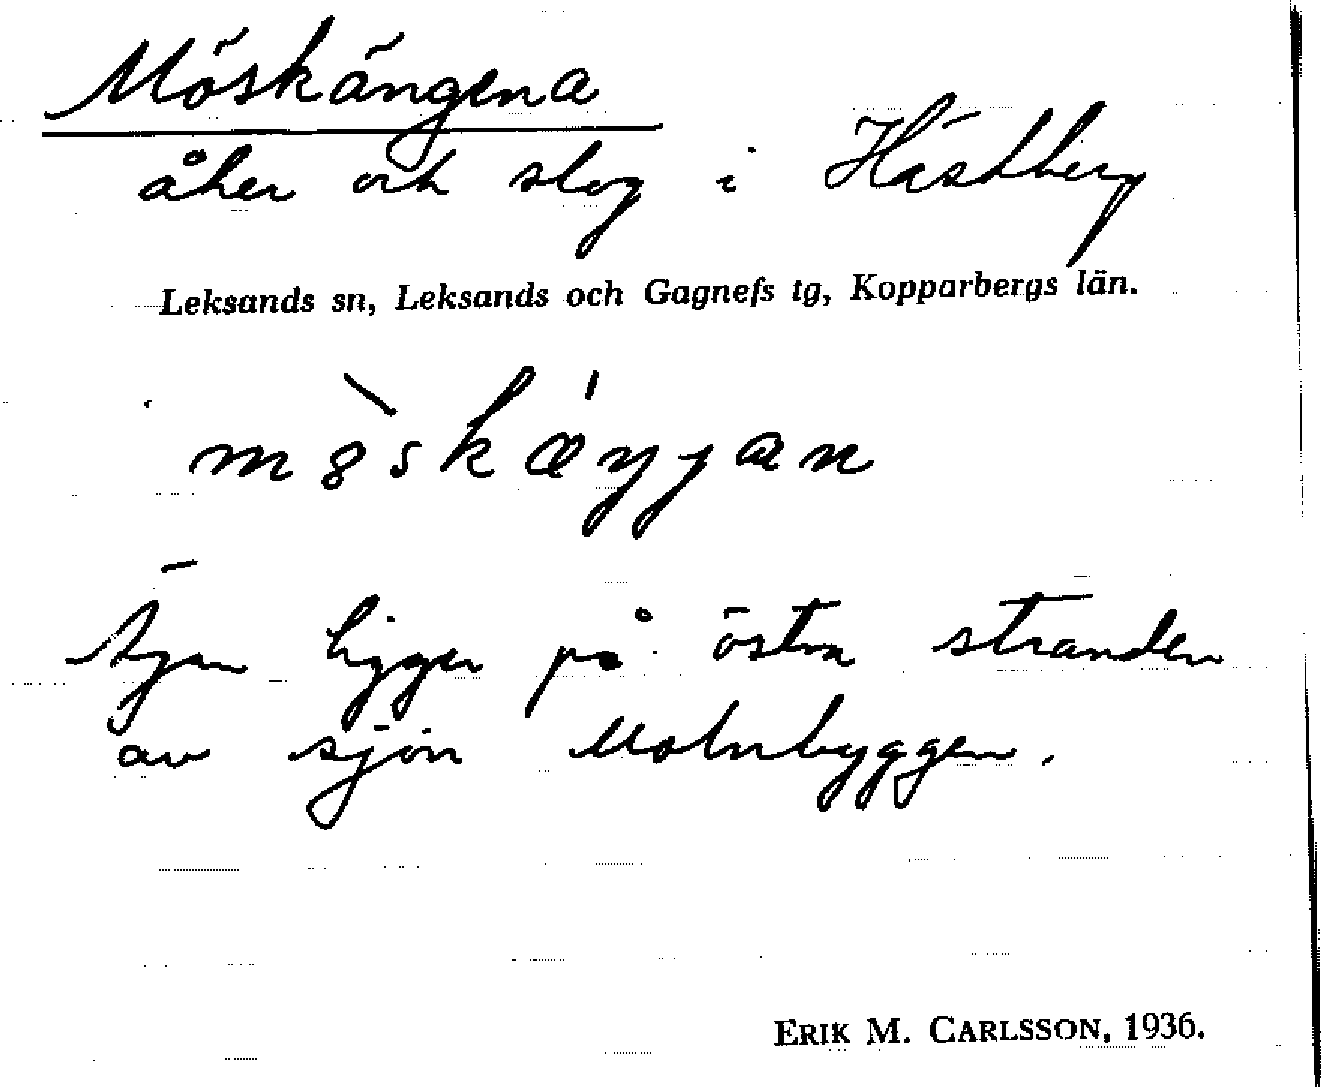 Möskängena
åker och slog i Hästberg
Leksands sn, Leksands och Gagnefs tg, Kopparbergs län.
ligger på östra stranden
av sjön Molnbyggen.
ERIK M. CARLSSON, 1936.